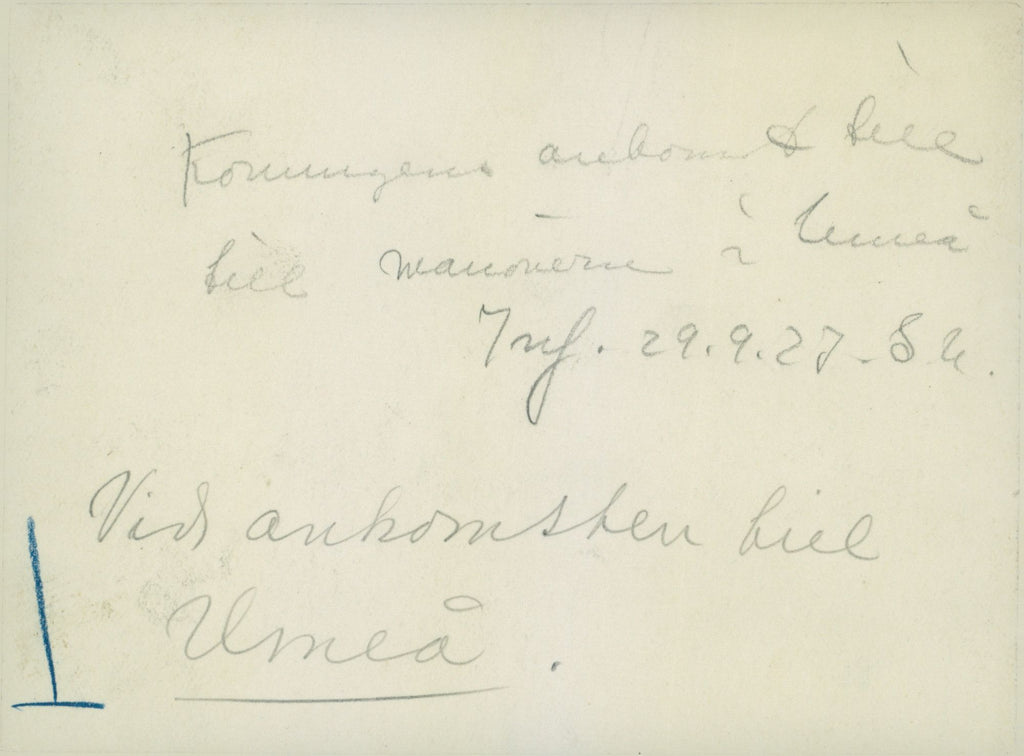 Konungens ankomst till
till manövern i Umeå
Inf. 29.9.27. S U.
Vid ankomsten till
Umeå.